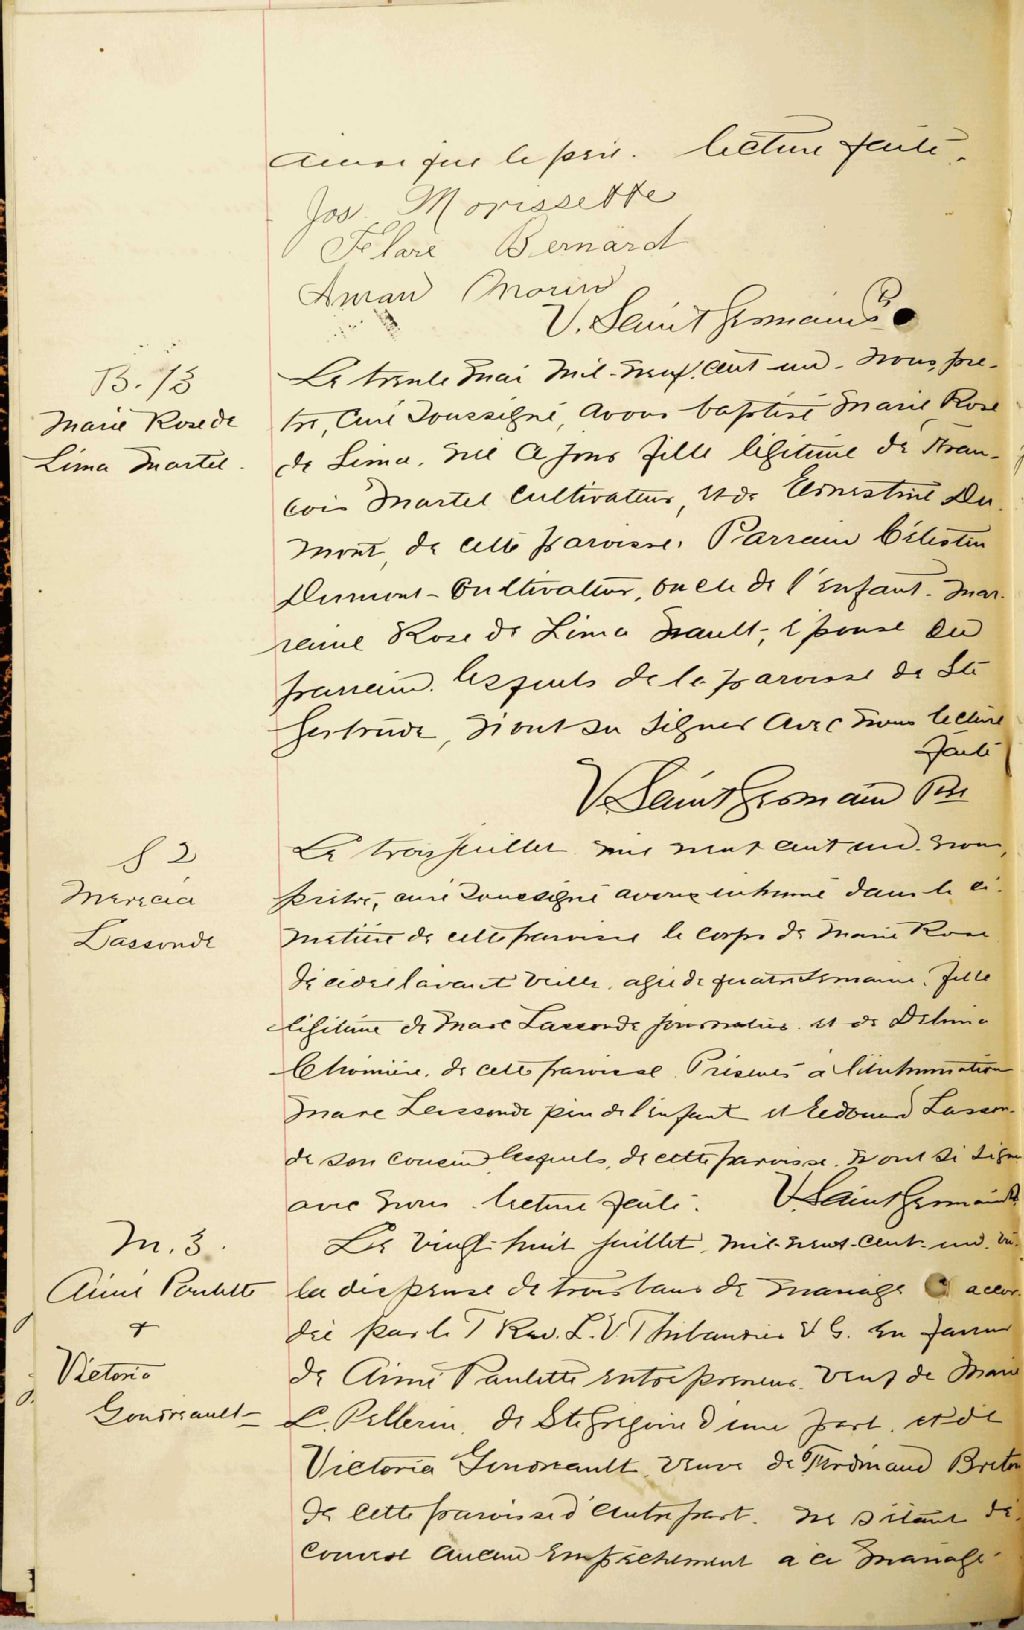 ainsi que le père. lecture faite.
Jos. Morissette
Flare Bernard
Aman Morin
V. Saint Germain P
B. 13
Marie Rose de
Lima Martel.
Le trente mai mil-neuf cent un. nous, prê-
tre, curé soussigné, avons baptisé Marie Rose
de Lima, née ce jour fille légitime de Fran-
çois Martel cultivateur, et de Ernestine Du-
mont, de cette paroisse. Parrain Célestin
Dumont - cultivateur, oncle de l'enfant. mar-
raine Rose de Lima épouse du
parrain. lesquels de la paroisse de Ste
Gertrude, n'ont su signer avec nous lecture
faite
V. Saint Germain Ptre
S 2
Merecia
Lassonde
Le trois juillet mil neuf cent un. nous,
prêtre, curé soussigné avons inhumé dans le ci-
metière de cette paroisse le corps de Marie Rose
décédée l'avant veille, agée de quatre semaine. fille
légitime de Marc Lassonde journalier et de Delima
de cette paroisse. Présents à l'inhumation
Marc Lassonde père de l'enfant et Edouard Lasson-
de son cousin lesquels, de cette paroisse. n'ont su signer
avec nous. lecture faite. V. Saint Germain P
M. 3.
Aimé Paulette
+
Victoria
Goudreault
Le vingt-huit juillet, mil-neuf-cent-un. vu
la dispense de trois bans de mariage accor-
dée par le T Rev. L. V. Thibaudier V G. en faveur
de Aimé Paulette entrepreneur, veuf de Marie
L. Pellerin, de Ste Grégoire d'une part, et de
Victoria Goudreault veuve de Ferdinand Breton
de cette paroisse d'autre part. ne s'étant dé-
couvert aucun empêchement à ce mariage